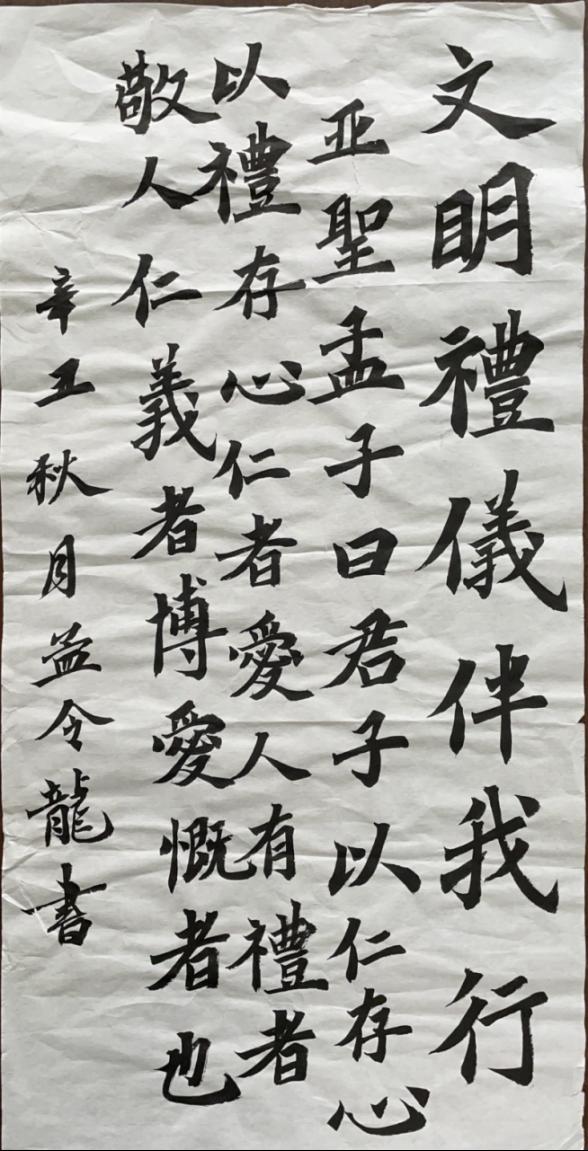 文明禮儀伴我行
亚聖孟子曰君子以仁存心
以禮存心仁者愛人有禮者
敬人仁義者博愛慨者也
辛丑秋月孟令龍書